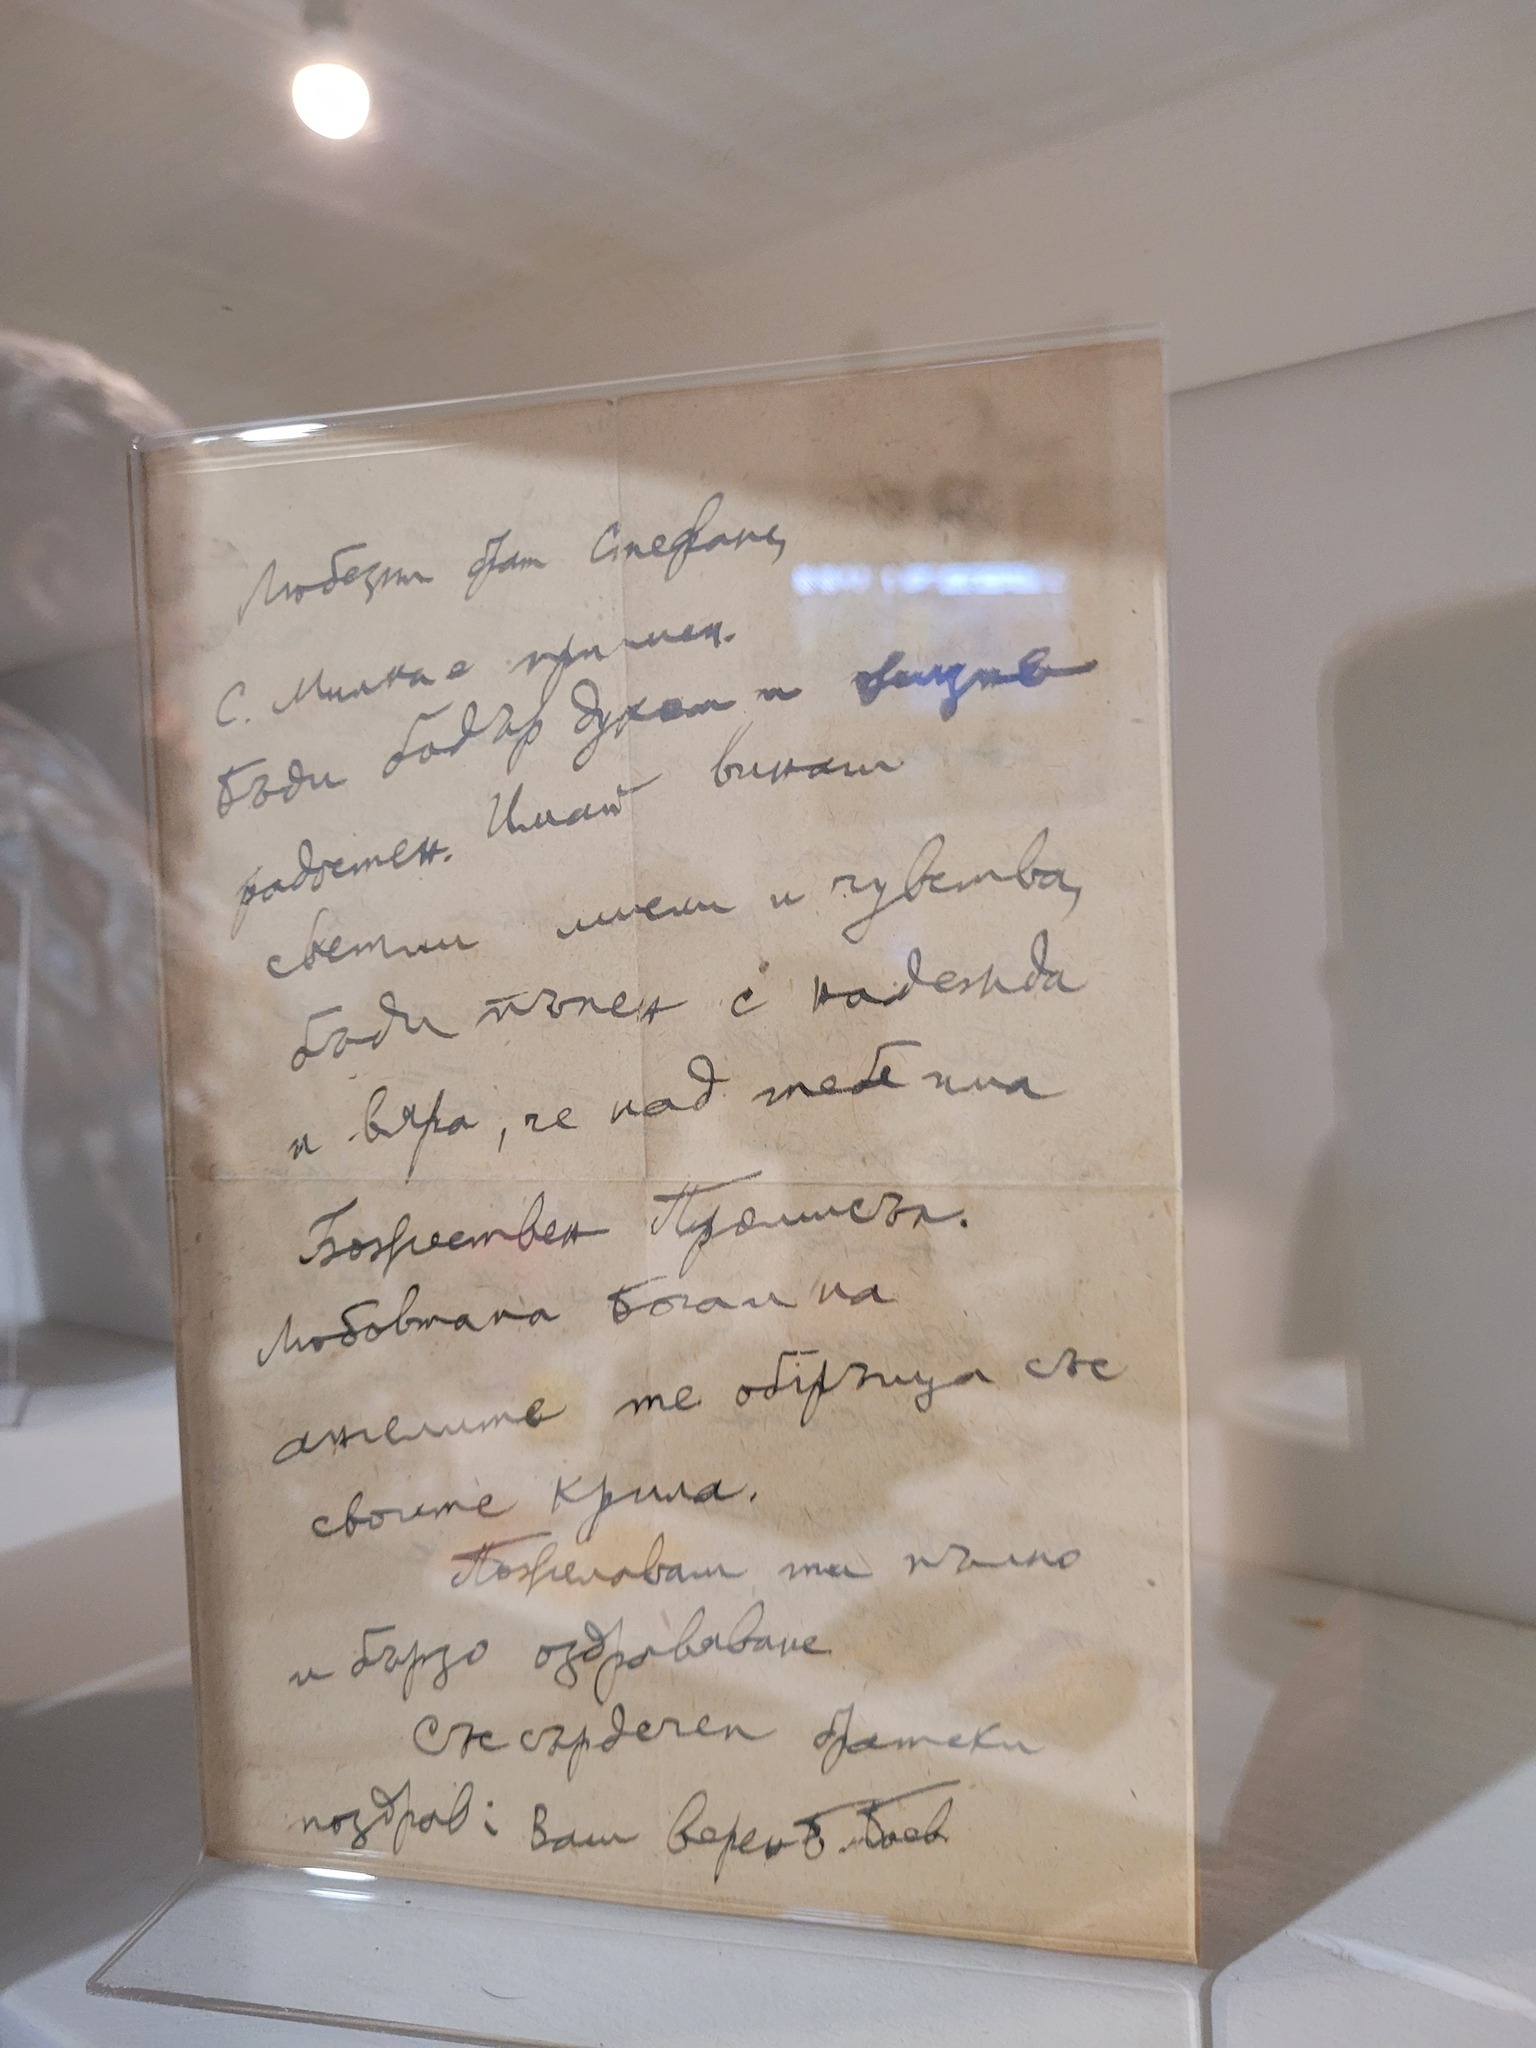 Любезни брат Стефане,
С. Милка е при мен.
Бъди бодър духом и
радостен. Имай винаги
светли мисли и чувства,
бъди пълен с надежда
и вяра, че над тебе има
Божествен Промисъл.
Любовта на Бога и на
ангелите те обгръща със
своите крила.
Пожелавам ти пълно
и бързо оздравяване
Със сърдечен братски
поздрав: Ваш верен Б. Боев